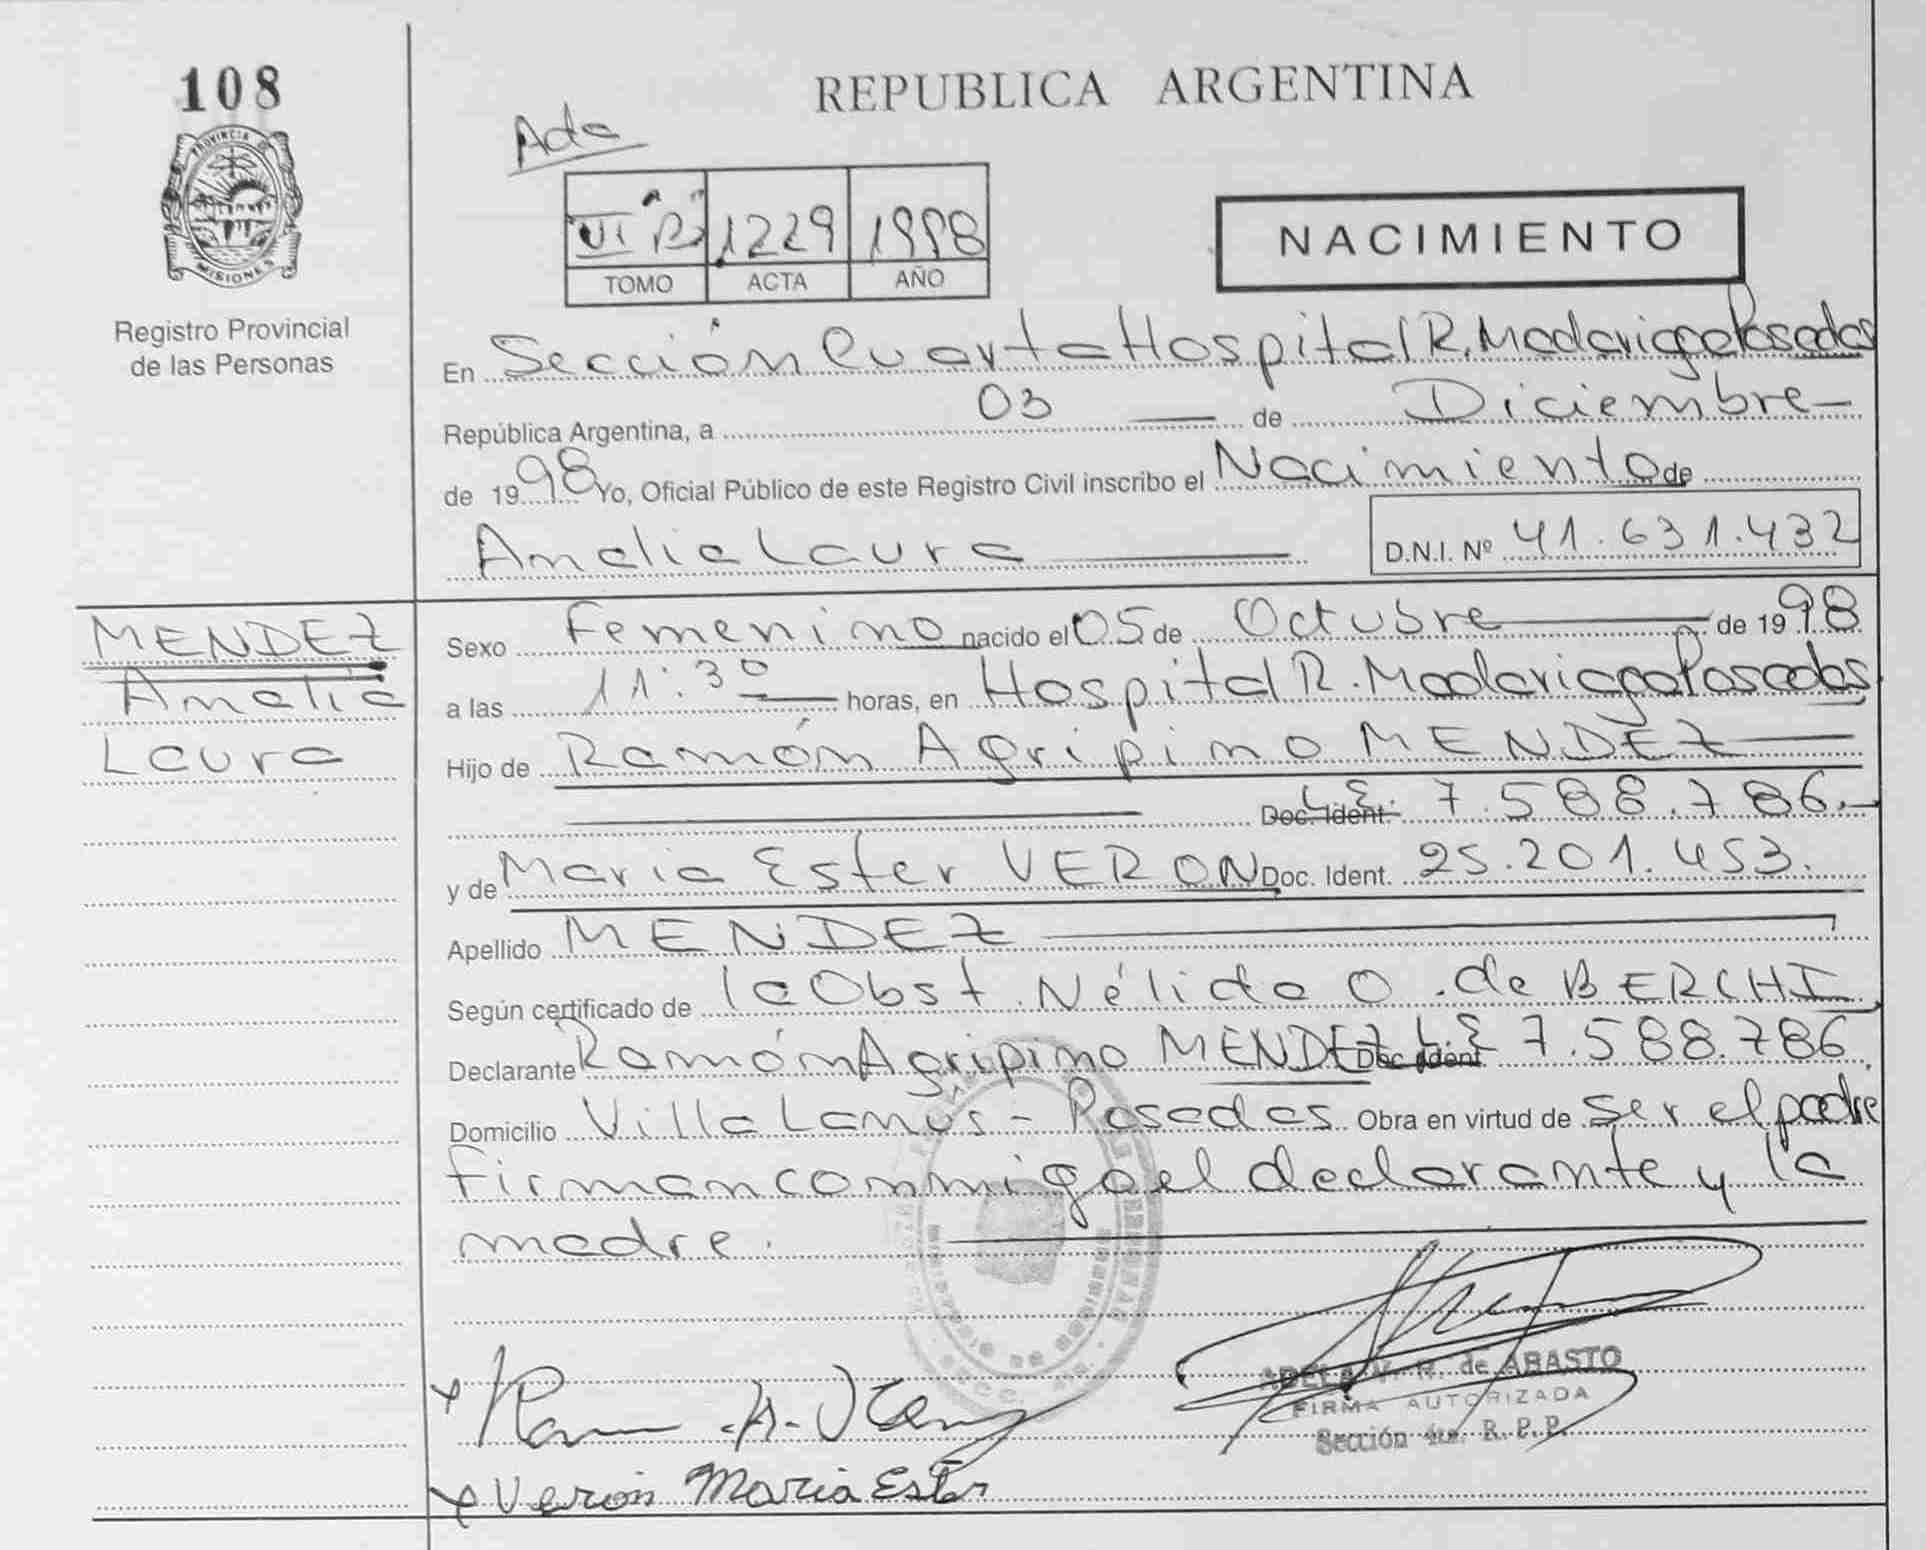 108
REPUBLICA ARGENTINA
Acta
PROVINCIA DE
MISIONES
VI "B" 1229 1998
TOMO ACTA AÑO
NACIMIENTO
Registro Provincial
de las Personas
En Sección Cuarta Hospital R. Madariaga Posadas
República Argentina, a 03 de Diciembre
de 1998 Yo, Oficial Público de este Registro Civil inscribo el Nacimiento de
Amelia Laura D.N.I. Nº 41.631.432
MENDEZ
Amelia
Laura
Sexo Femenino nacido el 05 de Octubre de 1998
a las 11:30 horas, en Hospital R. Madariaga Posadas
Hijo de Ramón Agripino MENDEZ
Doc. Ident. L.E. 7.588.786.
y de Maria Ester VERON Doc. Ident. 25.201.453.
Apellido MENDEZ
Según certificado de la Obst. Nélida O. de BERCHI
Declarante Ramón Agripino MENDEZ Doc. Ident L.E 7.588.786
Domicilio Villa Lanús - Posadas Obra en virtud de ser el padre
firman conmigo el declarante y la
madre.
ADELA V. R. de ABASTO
FIRMA AUTORIZADA
Sección 4ta. R.P.P.
x Ramon A.
x Veron Maria Ester